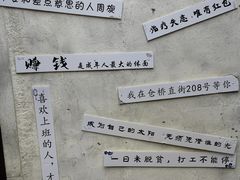 和差点意思的人周旋
治疗失恋 唯有红包
赚钱 是成年人最大的体面
我在仓桥直街208号等你
喜欢上班的人，才
成为自己的太阳 无须凭借谁的光
一日未脱贫，打工不能停